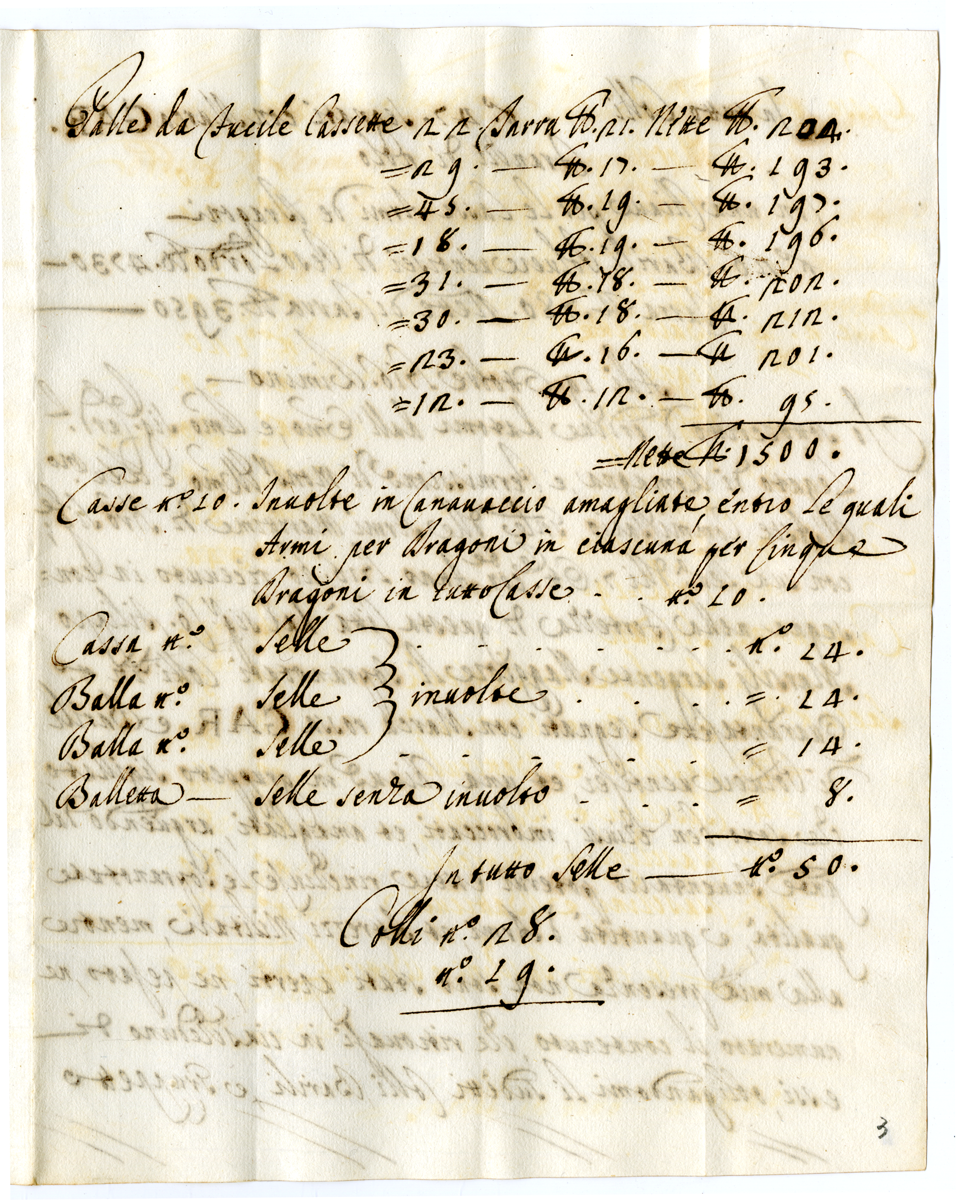 Palle da fucile Cassette. 22 Tarra ℔. 21. Nette ℔. 204.
= 29. — ℔. 17. — ℔. 193.
= 45. — ℔. 19. — ℔. 197.
= 18. — ℔. 19. — ℔. 196.
= 31. — ℔. 18. — ℔. 202.
= 30. — ℔. 18. — ℔. 212.
= 23. — ℔. 16. — ℔ 201.
= 12. — ℔. 12. — ℔. 95.
= Nette ℔: 1500.
Casse n.º 10. Involte in Canavaccio amagliate, entro le quali
Armi per Dragoni in ciascuna per Cinque
Dragoni in tutto Casse . . n.º 10.
Cassa n.º Selle . . . . . . . n.º 14.
Balla n.º Selle } involte . . . . = 14.
Balla n.º Selle . . . . . = 14.
Balletta — Selle senza involto . . . = 8.
In tutto Selle — n.º 50.
Colli n.º 28.
n.º 19.
3